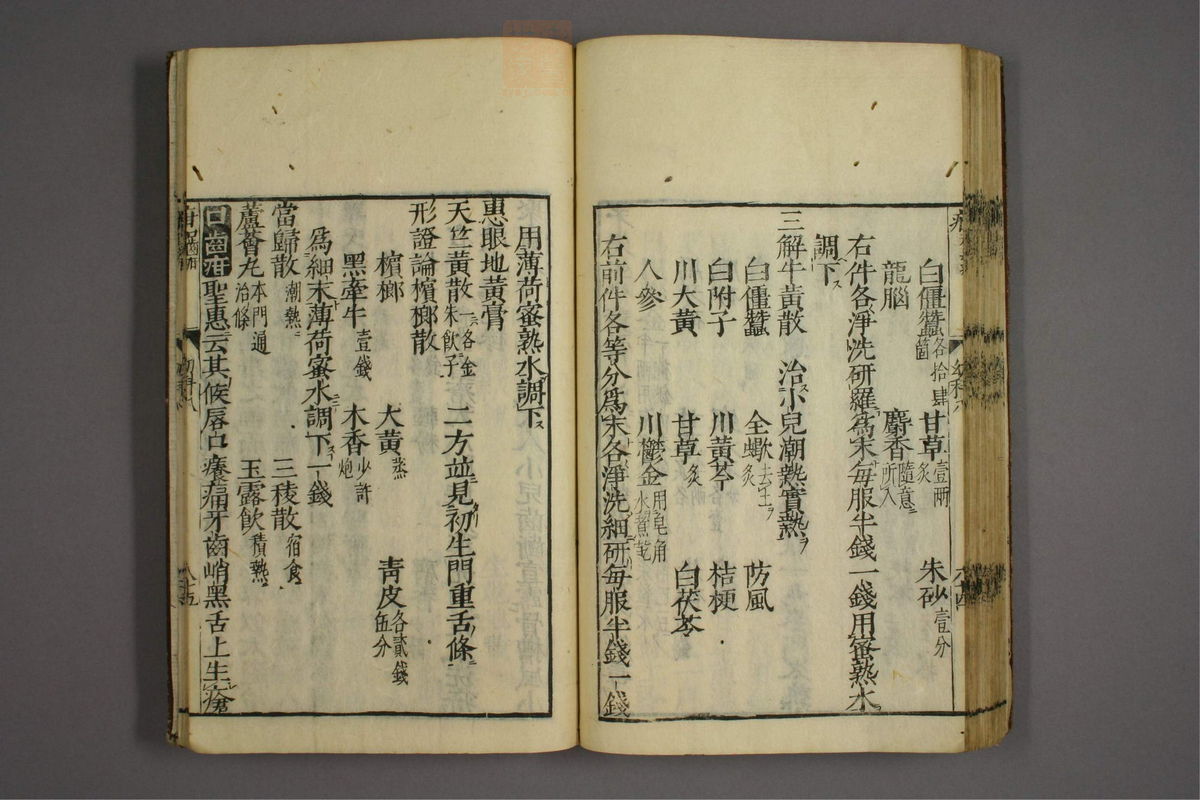 白僵蠶各拾肆箇 甘草壹兩炙 朱砂壹分
龍腦 麝香隨意所入
右件各淨洗研羅爲末每服半錢一錢用蜜熟水
調下
三解牛黃散 治小兒潮熱實熱
白僵蠶 全蠍去土炙 防風
白附子 川黃芩 桔梗
川大黃 甘草炙 白茯苓
人參 川鬱金用皂角水煮乾
右前件各等分爲末各淨洗細研每服半錢一錢
用薄荷蜜熟水調下
惠眼地黃膏
天竺黃散一各金朱飲子 二方並見初生門重舌條
形證論檳榔散
檳榔 大黃蒸 靑皮各貳錢伍分
黑牽牛壹錢 木香少許炮
爲細末薄荷蜜水調下一錢
當歸散潮熱 三稜散宿食
蘆薈丸本門通治條 玉露飮積熱
口齒疳聖惠云其候唇口癢痛牙齒峭黑舌上生瘡